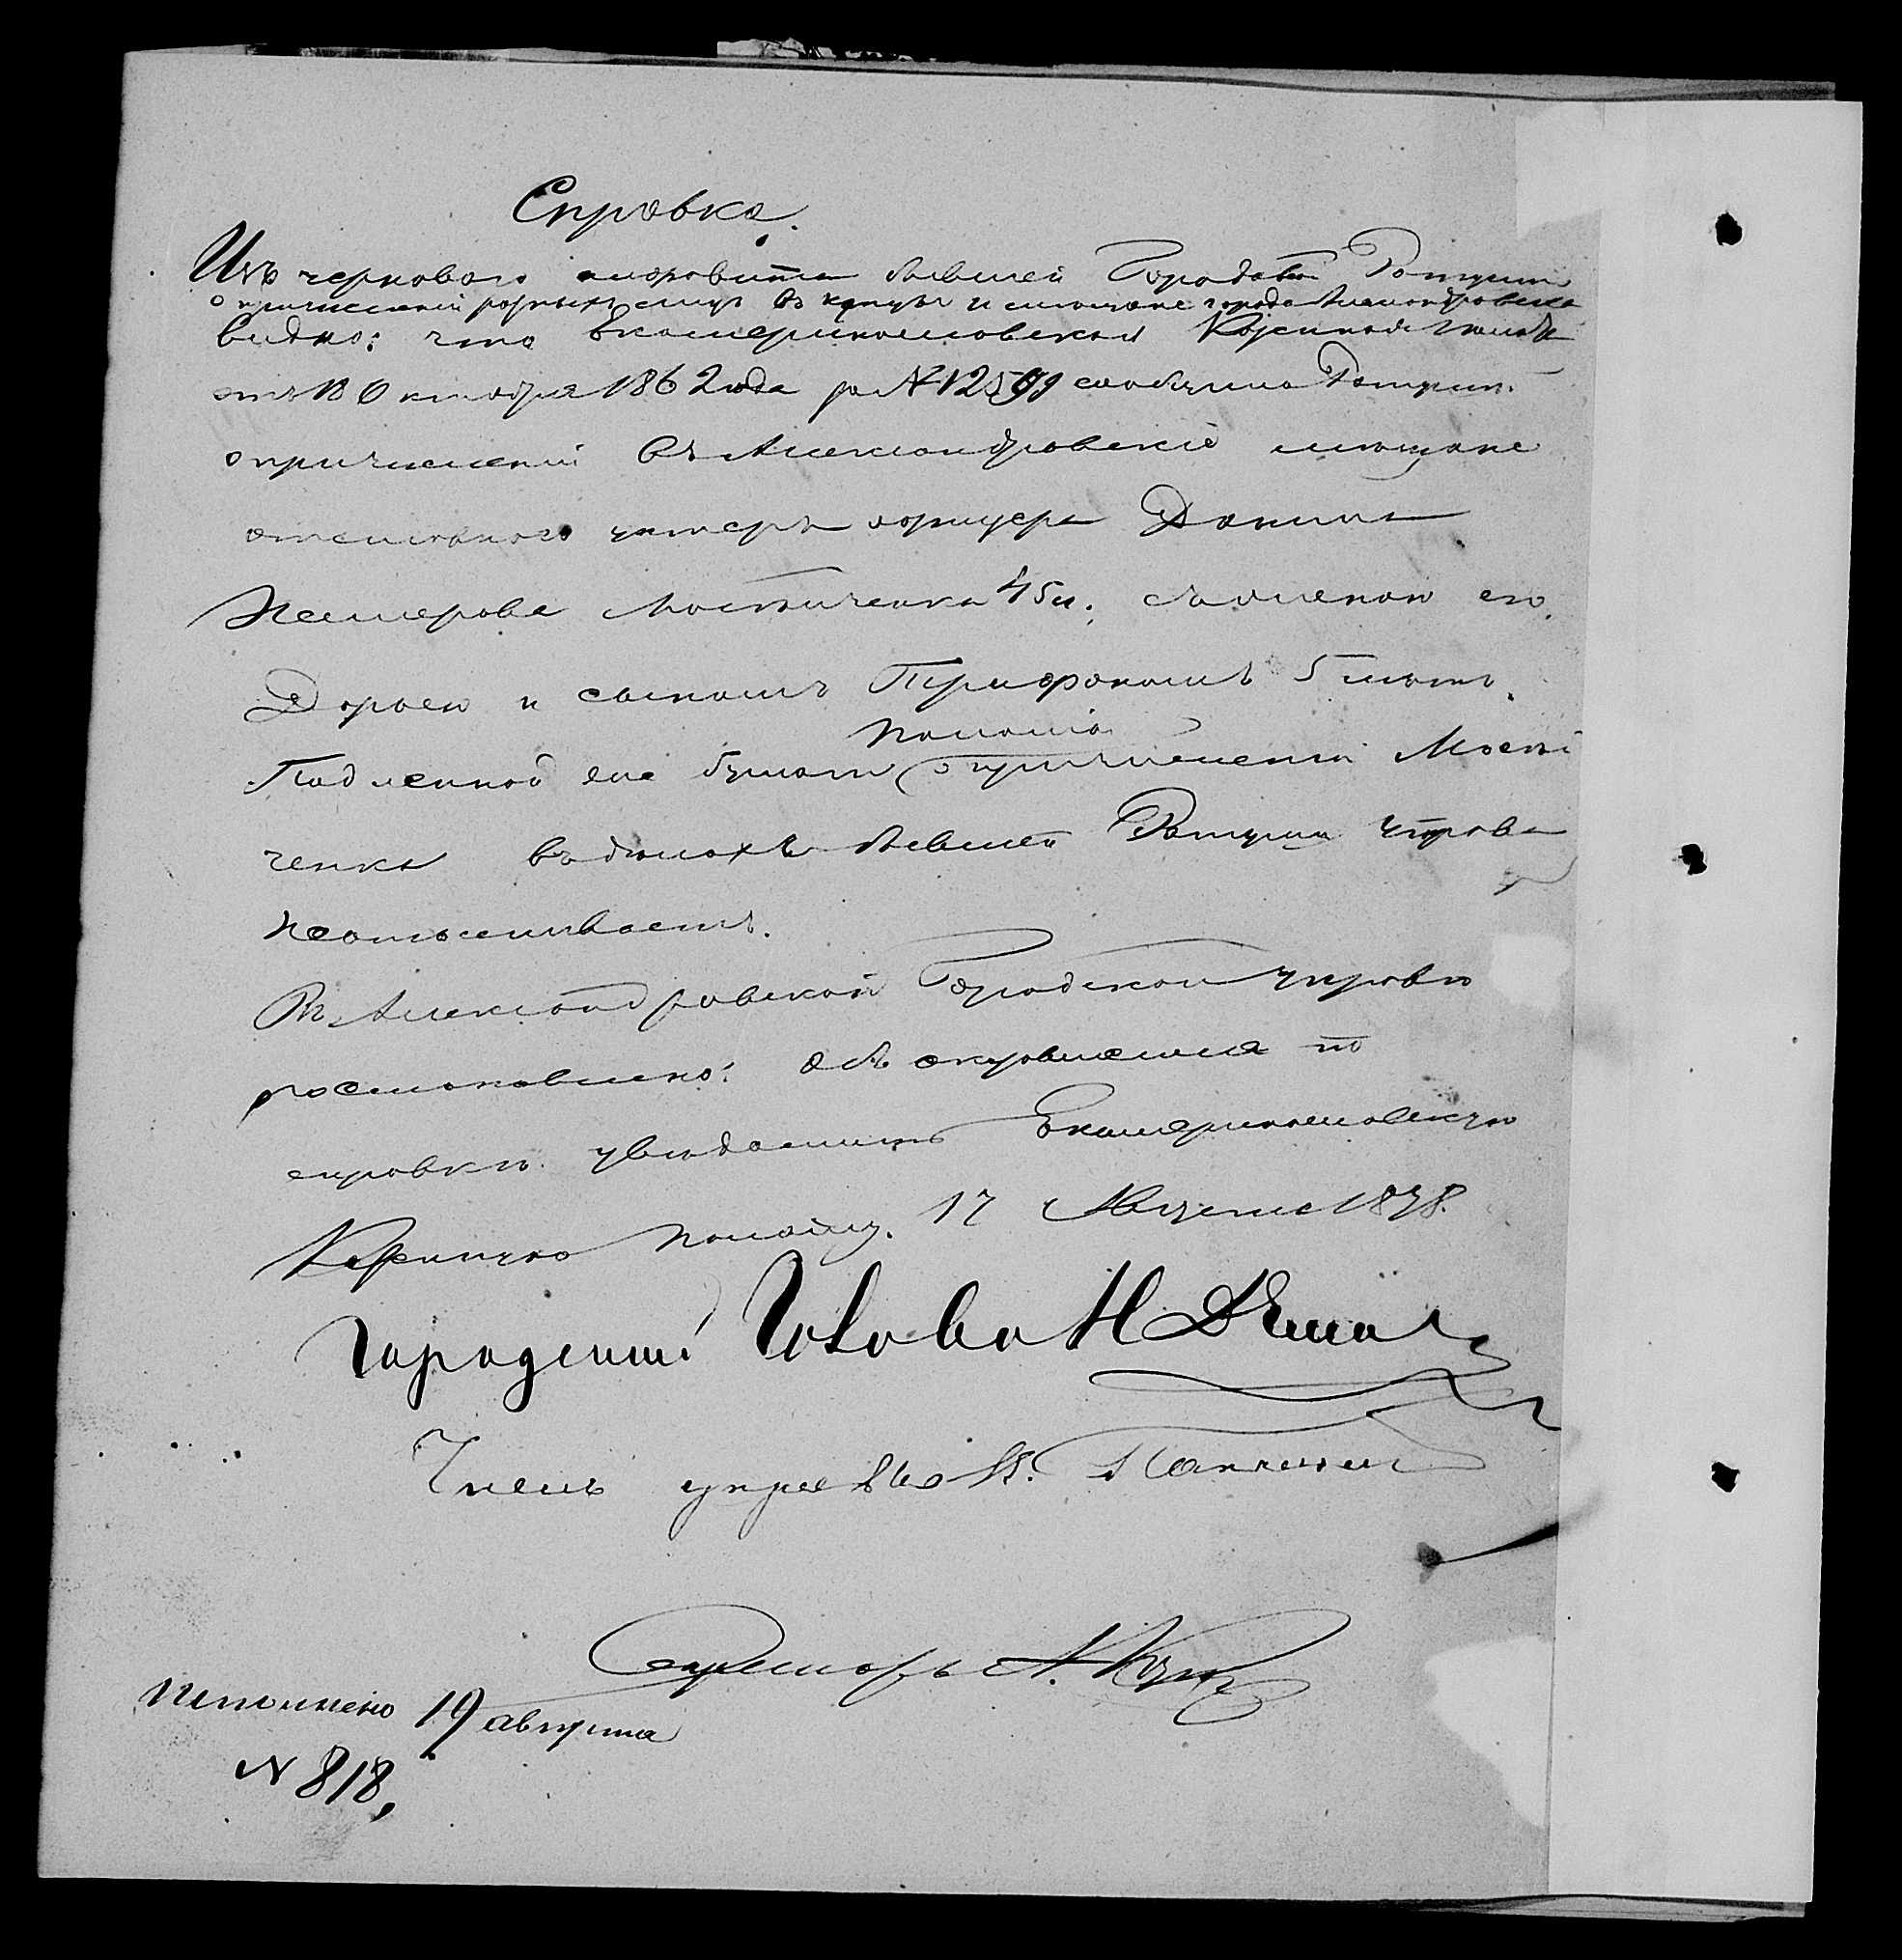 Справка.
Изъ черноваго алфавита бывшей Городовой Ратуши
о причисленіи разныхъ лицъ въ купцы и мѣщане города Александровска
видно: что Екатеринославская Казенная Палата
отъ 18 Октября 1862 года за № 12599 сообщила Ратуши
о причисленіи въ Александровскіе мѣщане
отставнаго унтеръ офицера Данила
Мостиченка 45 л., съ женою его
Дарьею и сыномъ Трифономъ 5 лѣтъ.
Подленной же бумаги Палаты о причисленіи Мости
ченка въ дѣлахъ бывшей Ратуши Управа
неотыскиваетъ.
Въ Александровской Городской Управѣ
постановлено: объ оказавшемся по
справкѣ увѣдомить Екатеринославскую
Казенную Палату. 17 Августа 1878.
Городской Голова Н
Членъ управы
Секретарь А.
Исполнено 19 августа
№ 818,